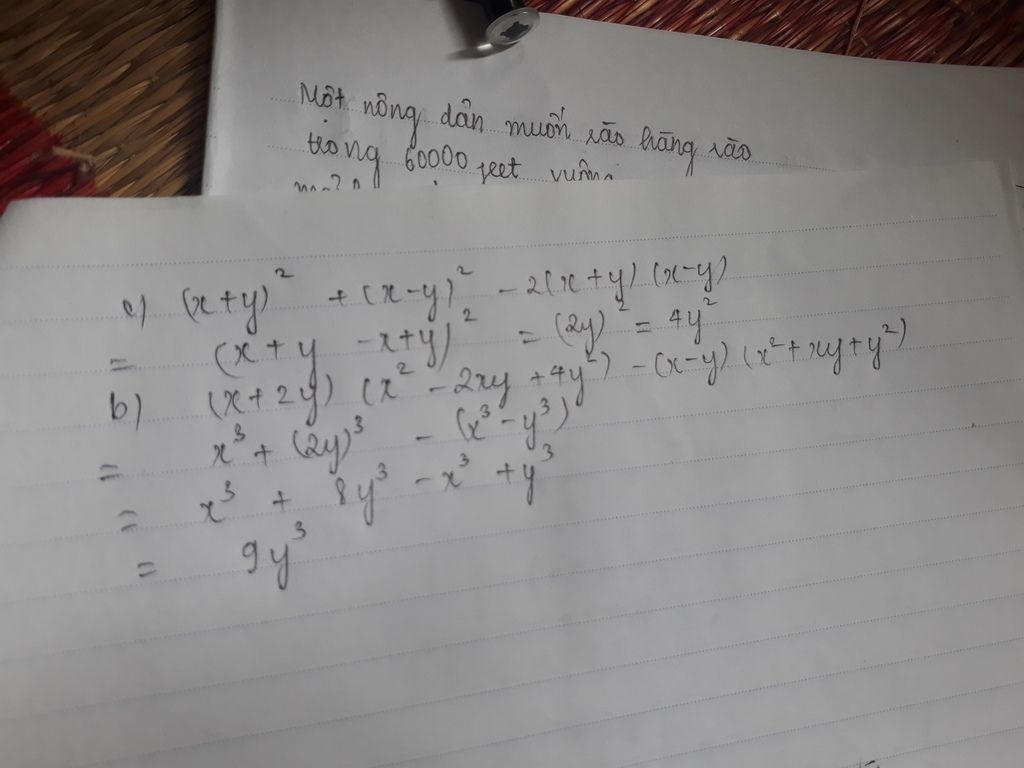 Một nông dân muốn rào hàng rào
trong 60000 feet vuông
c) (x+y)² + (x-y)² - 2(x+y)(x-y)
= (x+y -x+y)² = (2y)² = 4y²
b) (x+2y) (x² - 2xy + 4y²) - (x-y) (x²+xy+y²)
= x³ + (2y)³ - (x³-y³)
= x³ + 8y³ - x³ + y³
= 9y³